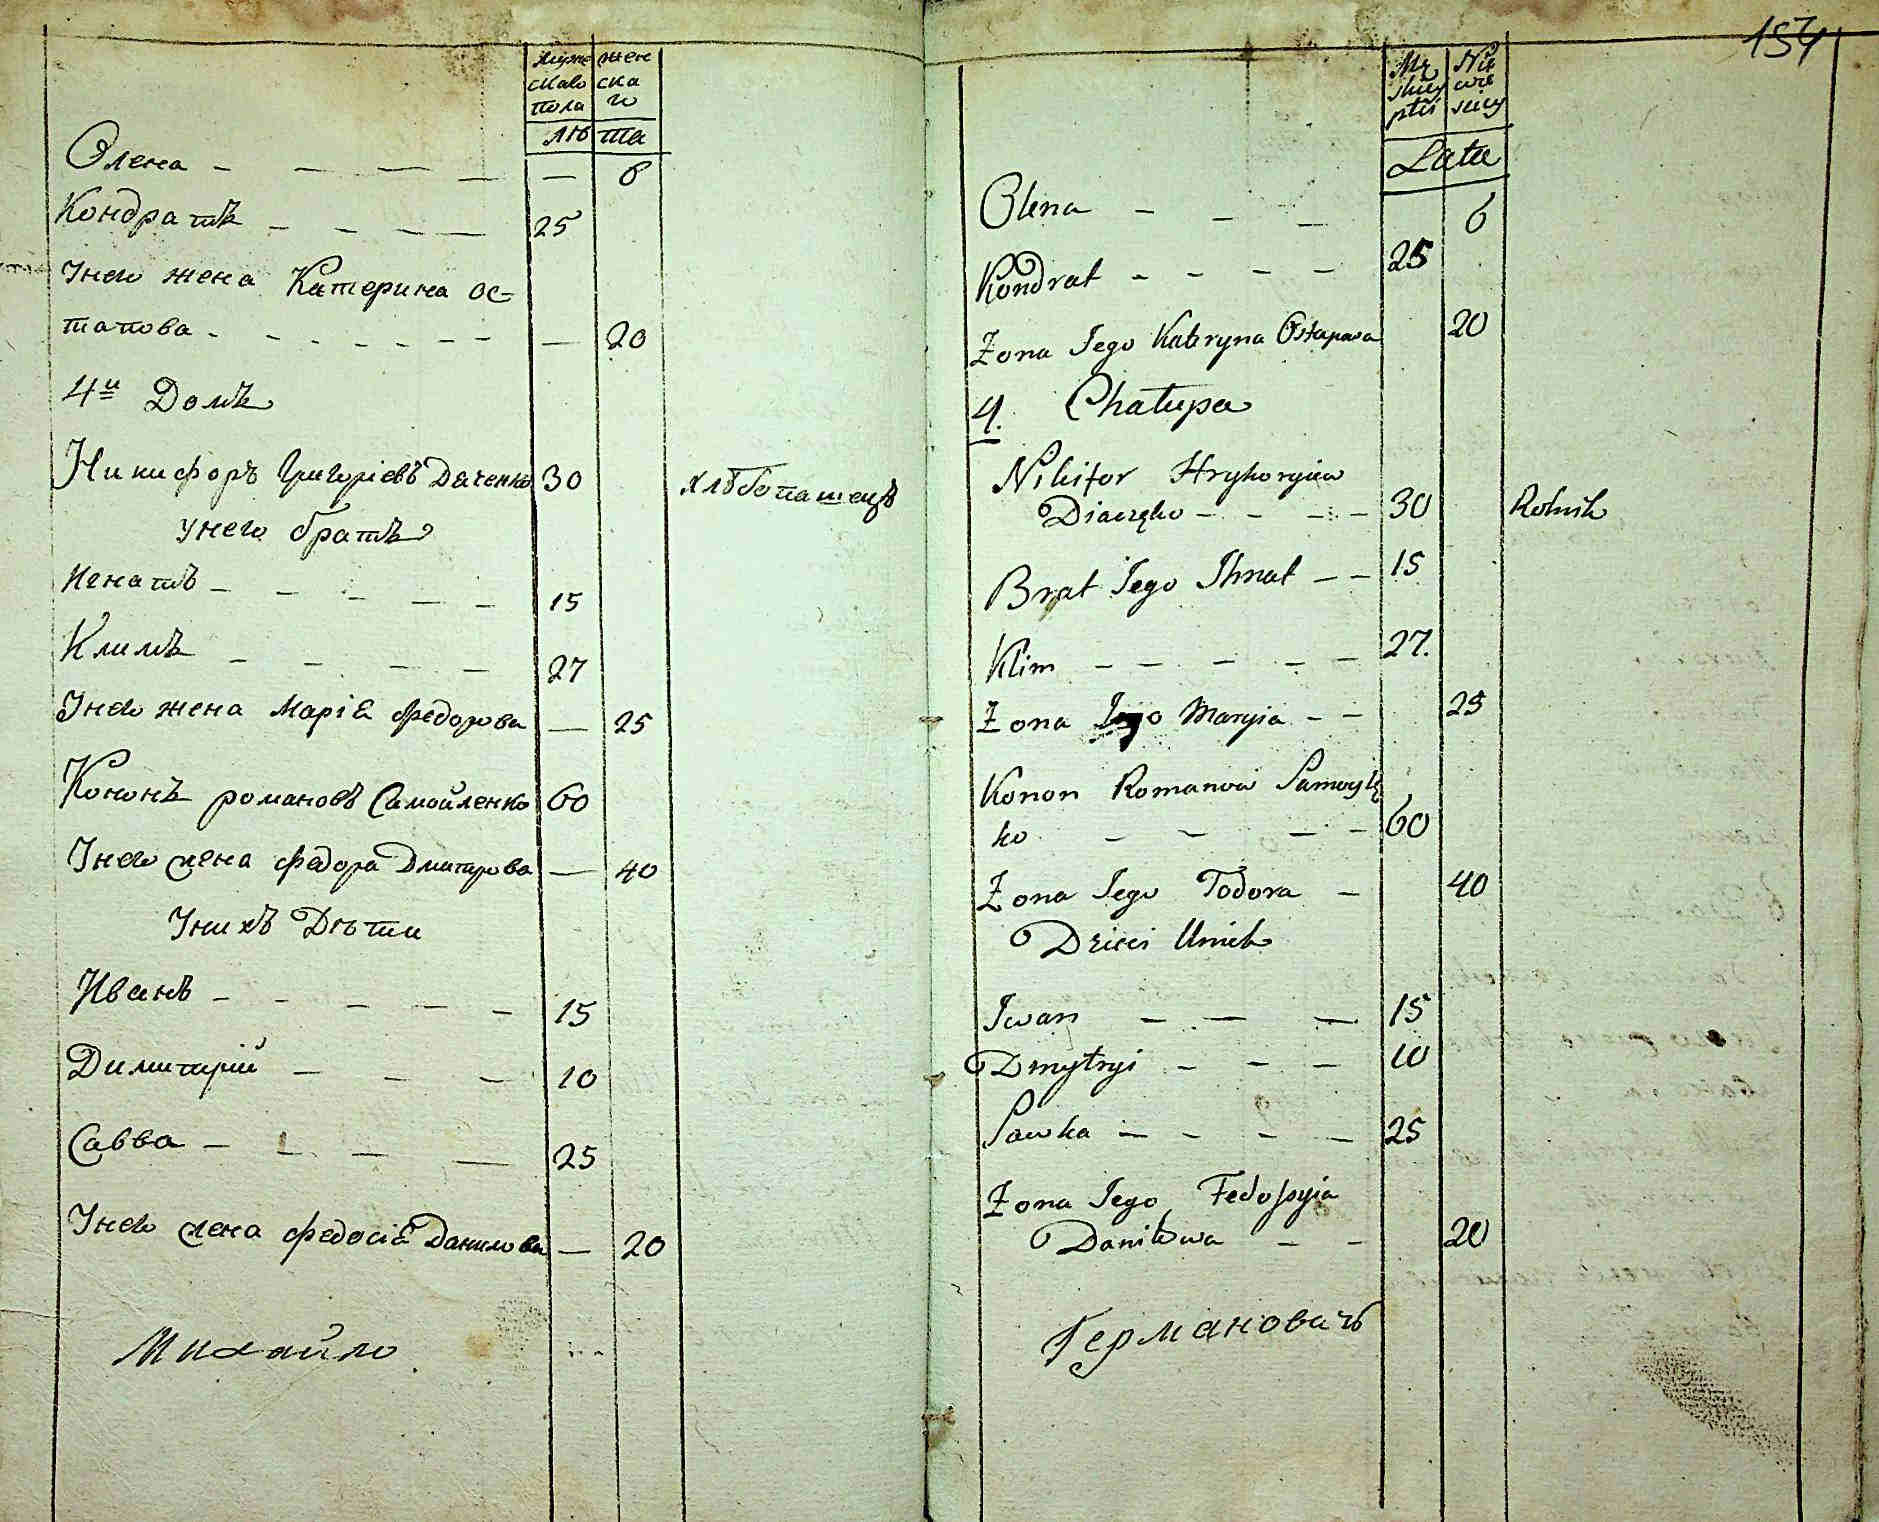 Мужескаго пола
женскаго
лѣ та
Олена - - - - - 6
Кондратъ - - - - 25
У него жена Катерина Ос-
тапова - - - - - - - 20
4й Домъ
Никифоръ Григоріевъ Даченко 30 хлѣбопашецъ
у него братъ
Игнатъ - - - - - 15
Климъ - - - - 27
У него жена Марія Федорова — 25
Кононъ романовъ Самойленко 60
У него жена Федора Дмитрова — 40
У нихъ Дѣти
Иванъ - - - - - 15
Димитрій - - - 10
Савва - - - - 25
У него жена Федосія Данилова — 20
Михайло
154
Męskiey płci
Niewieściey
Lata
Olena - - - 6
Kondrat - - - - 25
Żona Jego Kateryna Ostapowa 20
4. Chałupa
Nikifor Hryhoryiew
Diaczęko - - - - 30 Rolnik
Brat Jego Ihnat - - 15
Klim - - - - - 27.
Żona Jego Maryia - - 25
Konon Romanow Samoylę
ko - - - - 60
Żona Jego Todora - 40
Dzieci Unich
Iwan - - - 15
Dmytryi - - - 10
Sawka - - - - 25
Żona Jego Fedosyia
Daniłowa - - 20
Германовичъ